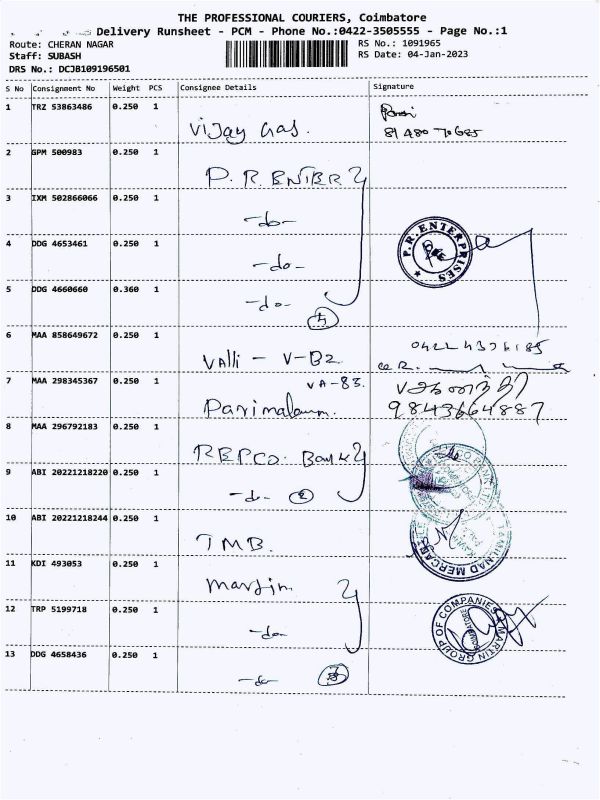 THE PROFESSIONAL COURIERS, Coimbatore
Delivery Runsheet - PCM - Phone No.:0422-3505555 - Page No.:1
Route: CHERAN NAGAR
Staff: SUBASH
DRS No.: DCJB109196501
RS No.: 1091965
RS Date: 04-Jan-2023
S No Consignment No Weight PCS Consignee Details Signature
1 TRZ 53863486 0.250 1
Vijay Gas.
81480 70685
2 GPM 500983 0.250 1
P. R. ENTER
3 IXM 502866066 0.250 1
-do-
4 DDG 4653461 0.250 1
-do-
P.R.ENTERPRISES
5 DDG 4660660 0.360 1
-do-
4
6 MAA 858649672 0.250 1
Valli - V-B2
0422 4376185
7 MAA 298345367 0.250 1
VA-83.
Parimalam.
9843664887
8 MAA 296792183 0.250 1
REPCO. Bank
9 ABI 20221218220 0.250 1
-do- 2
10 ABI 20221218244 0.250 1
TMB.
TAMILNAD MERCAN
11 KDI 493053 0.250 1
Martin
12 TRP 5199718 0.250 1
-do-
MARTIN GROUP OF COMPANIES
COIMBATORE
13 DDG 4658436 0.250 1
-do- 3